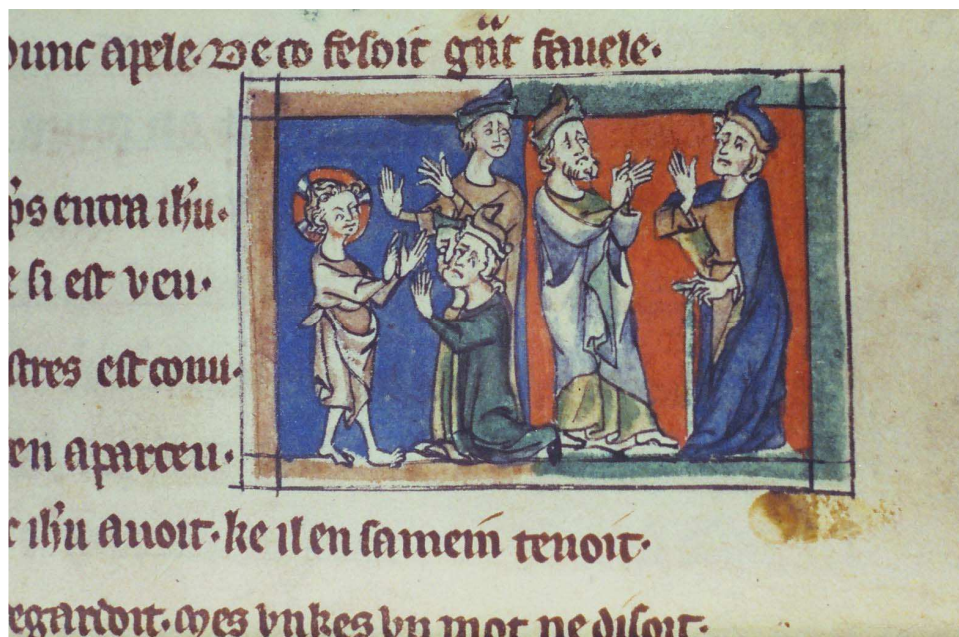 apele. De co fesoit gͣnt fauele.
entra ihu.
si est veu.
est conu.
en aparceu.
ihu auoit. ke il en sa mein tenoit.
egardoit. mes vnkes vn mot ne disoit.